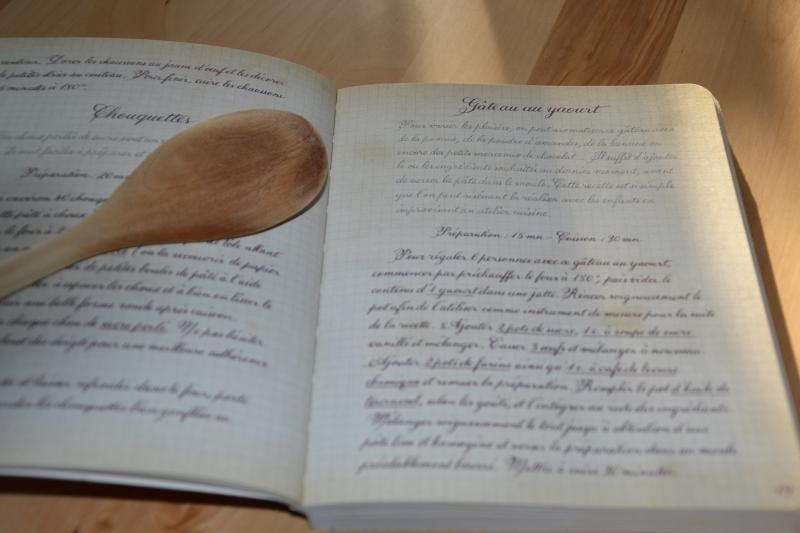 couteau. Dorer les chaussons au jaune d'œuf et les décorer
de petites stries au couteau. Pour finir, cuire les chaussons
minutes à 180°.
Chouquettes
Préparation : 20 mn
tôle allant
ou la recouvrir de papier
de petites boules de pâte à l'aide
à espacer les choux et à bien en lisser le
une belle forme ronde après cuisson.
chaque chou de sucre perlé. Ne pas hésiter
bout des doigts pour une meilleure adhérence
et laisser refroidir dans le four, porte
les chouquettes bien gonflées au
Gâteau au yaourt
Pour varier les plaisirs, on peut aromatiser ce gâteau avec
de la pomme, de la poudre d'amandes, de la banane ou
encore des petits morceaux de chocolat... Il suffit d'ajouter
le ou les ingrédients souhaités au dernier moment, avant
de verser la pâte dans le moule. Cette recette est si simple
que l'on peut aisément la réaliser avec les enfants en
improvisant un atelier cuisine.
Préparation : 15 mn - Cuisson : 30 mn
Pour régaler 6 personnes avec ce gâteau au yaourt,
commencer par préchauffer le four à 180°, puis vider le
contenu d'1 yaourt dans une jatte. Rincer soigneusement le
pot afin de l'utiliser comme instrument de mesure pour la suite
de la recette. Ajouter 2 pots de sucre, 1 c. à soupe de sucre
vanillé et mélanger. Casser 3 œufs et mélanger à nouveau.
Ajouter 2 pots de farine ainsi qu'1 c. à café de levure
chimique et remuer la préparation. Remplir le pot d'huile de
tournesol, selon les goûts, et l'intégrer au reste des ingrédients.
Mélanger soigneusement le tout jusqu'à obtention d'une
pâte lisse et homogène et verser la préparation dans un moule
préalablement beurré. Mettre à cuire 30 minutes.